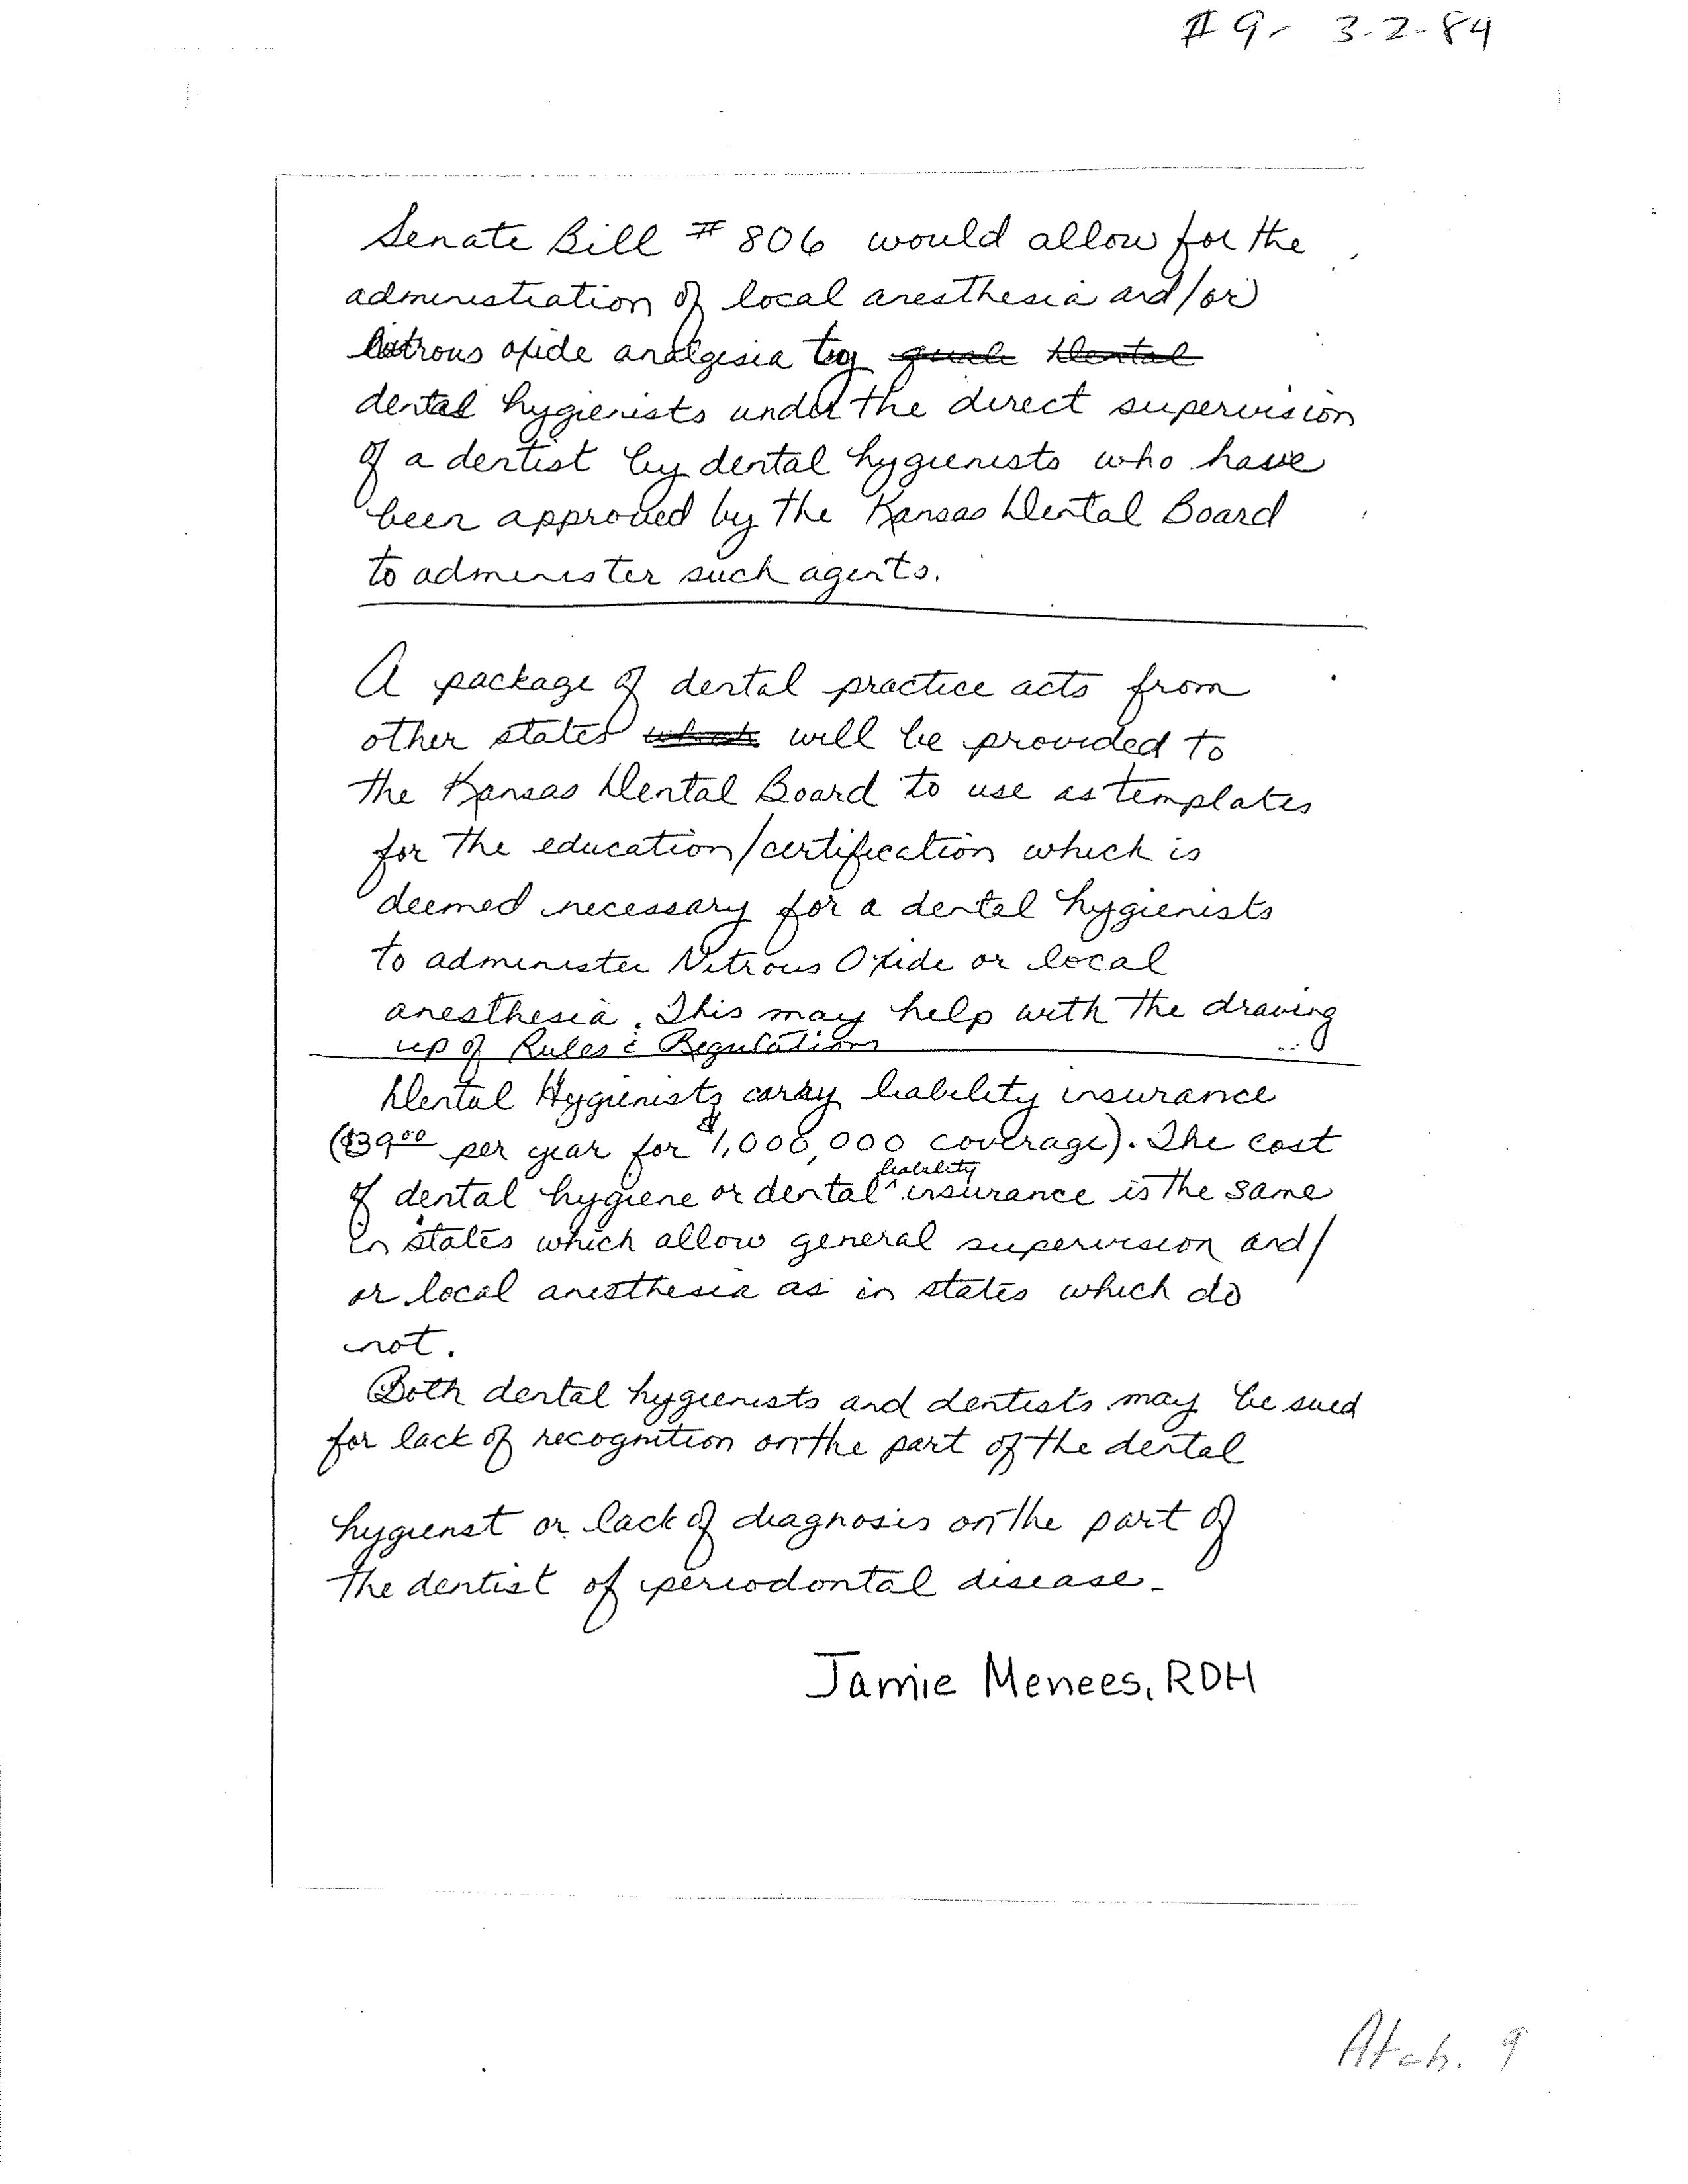 #9- 3-2-84
Senate Bill # 806 would allow for the
administration of local anesthesia and/or
Nitrous oxide analgesia by
dental hygienists under the direct supervision
of a dentist by dental hygienists who have
been approved by the Kansas Dental Board
to administer such agents.
A package of dental practice acts from
other states will be provided to
the Kansas Dental Board to use as templates
for the education/certification which is
deemed necessary for a dental hygienists
to administer Nitrous Oxide or local
anesthesia. This may help with the drawing
up of Rules & Regulations
Dental Hygienists carry liability insurance
($39.00 per year for $1,000,000 coverage). The cost
of dental hygiene or dental ^liability insurance is the same
in states which allow general supervision and/
or local anesthesia as in states which do
not.
Both dental hygienists and dentists may be sued
for lack of recognition on the part of the dental
hygienst or lack of diagnosis on the part of
the dentist of periodontal disease.
Jamie Menees, RDH
Atch. 9